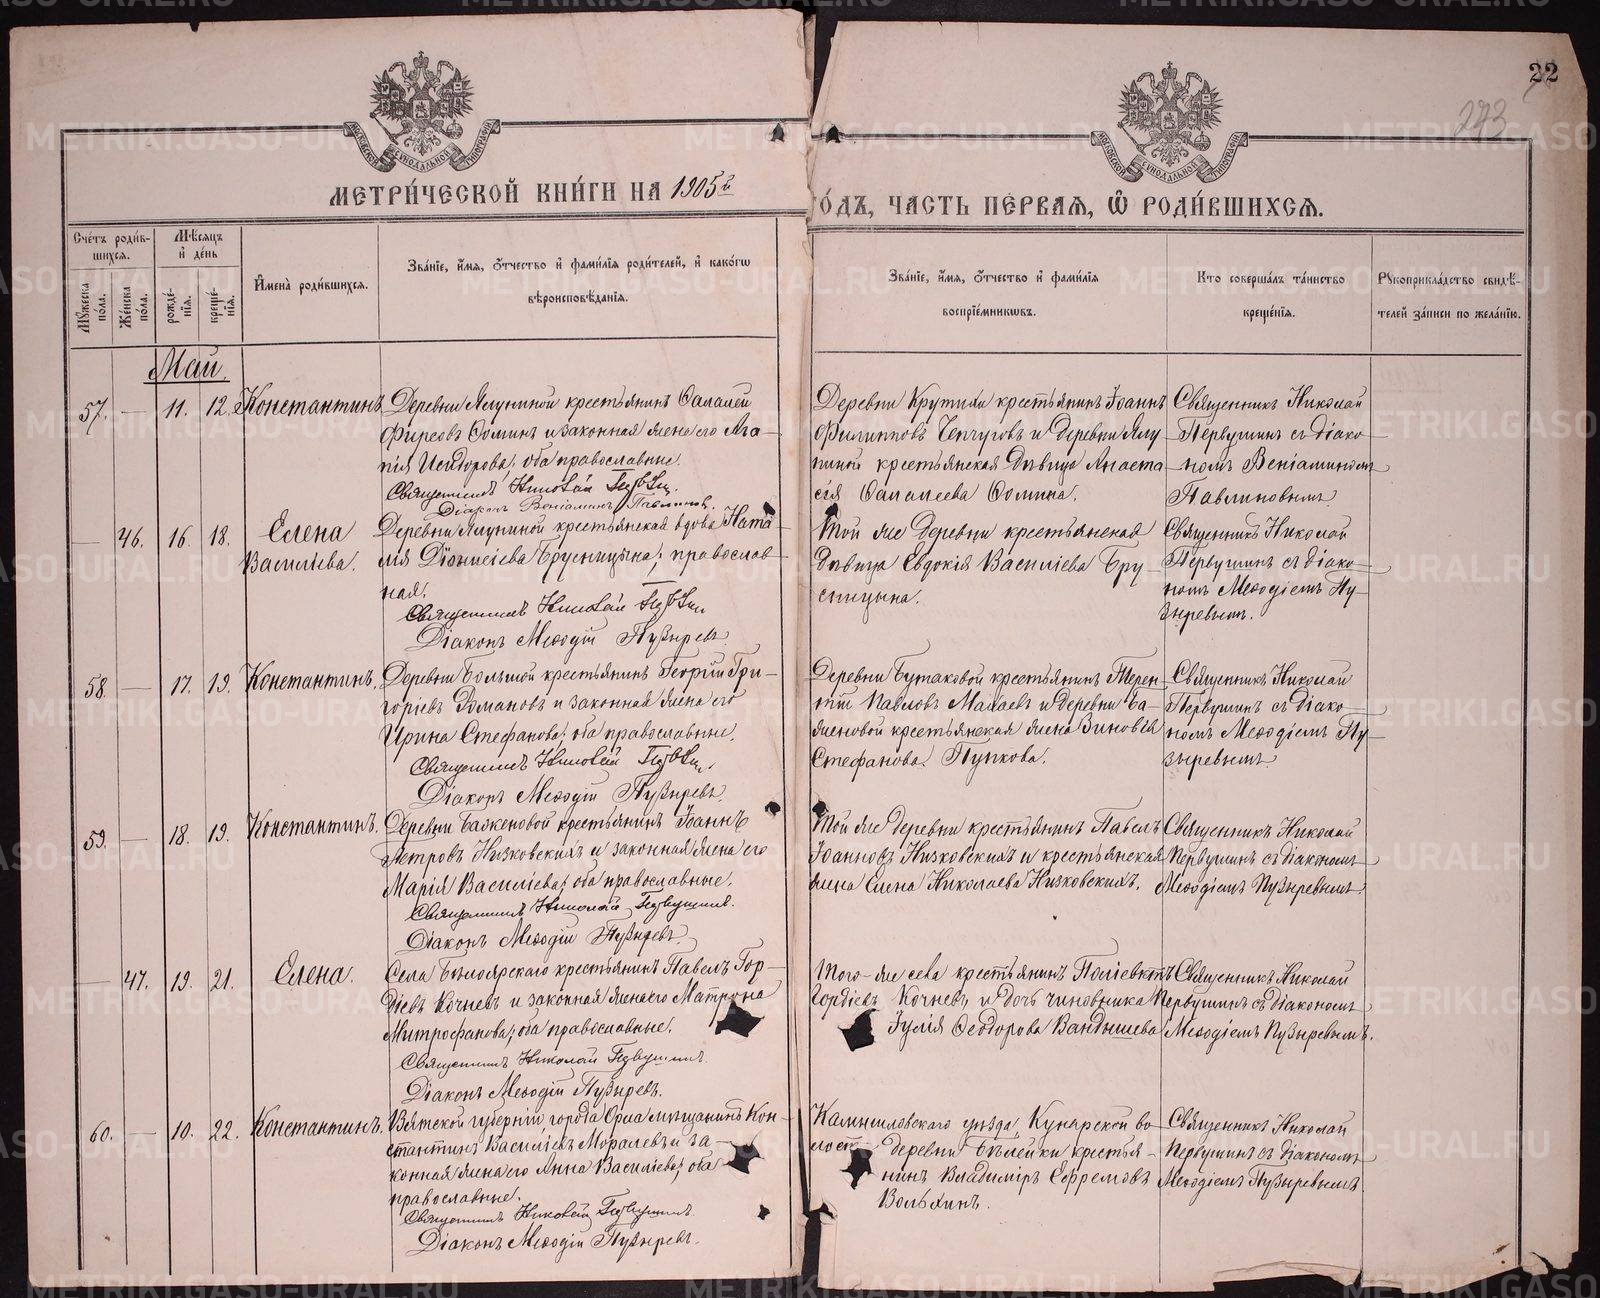 22
273
МОСКОВСКОЙ СѴНОДАЛЬНОЙ ТИПОГРАФІИ
МОСКОВСКОЙ СѴНОДАЛЬНОЙ ТИПОГРАФІИ
МЕТРИ́ЧЕСКОЙ КНИ́ГИ НА 1905й
ГО́ДЪ, ЧАСТЬ ПЕ́РВАЯ, Ѽ РОДИ́ВШИХСЯ.
Сче́тъ роди́вшихся.
Мꙋ́жеска по́ла.
Же́нска по́ла.
Мѣ́сяцъ и҆ де́нь
рожде́нія.
креще́нія.
И҆мена̀ роди́вшихся.
Зва́ніе, и҆́мя, ѻ҆́тчество и҆ фами́лія роди́телей, и҆ како́гѡ
вѣроисповѣ́данія.
Зва́ніе, и҆́мя, ѻ҆́тчество и҆ фами́лія
воспріе́мникѡвъ.
Кто соверша́лъ та́инство
креще́нія.
Рꙋкоприкла́дство свидѣ́телей за́писи по жела́нію.
Май.
57. — 11. 12. Константинъ
Деревни Ялуниной крестьянинъ Фалалей
Фирсовъ Соминъ и законная жена его Ага-
пія Исидорова, оба православные.
Священникъ Николай
Діаконъ Веніаминъ Павлиновъ.
Деревни Крутихи крестьянинъ Іоаннъ
Филипповъ Ченчуговъ и деревни Ялу
ниной крестьянская дѣвица Анаста
сія Фалалеева Сомина.
Священникъ Николай
Первушинъ съ діако-
номъ Веніаминомъ
Павлиновымъ
— 46. 16. 18. Елена
Василіева.
Деревни Ялуниной крестьянская вдова Ната
лія Діонисіева Брусницына, православ
ная.
Священникъ Николай
Діаконъ Меѳодій Пузыревъ
Той же деревни крестьянская
дѣвица Евдокія Василіева Бру
сницына.
Священникъ Николай
Первушинъ съ діако-
номъ Меѳодіемъ Пу-
зыревымъ.
58. — 17. 19. Константинъ.
Деревни Большой крестьянинъ Георгій Гри-
горіевъ Романовъ и законная жена его
Ирина Стефанова, оба православные.
Священникъ Николай
Діаконъ Меѳодій Пузыревъ.
Деревни Бутаковой крестьянинъ Терен-
тій Павловъ Малаевъ и деревни Ба-
женовой крестьянская жена Зиновія
Стефанова Пупкова.
Священникъ Николай
Первушинъ съ діако-
номъ Меѳодіемъ Пу-
зыревымъ
59. — 18. 19. Константинъ.
Деревни Баженовой крестьянинъ Іоаннъ
Петровъ Низковскихъ и законная жена его
Марія Василіева, оба православные.
Священникъ Николай Первушинъ.
Діаконъ Меѳодій Пузыревъ.
Той же деревни крестьянинъ Павелъ
Іоанновъ Низковскихъ и крестьянская
жена Елена Николаева Низковскихъ.
Священникъ Николай
Первушинъ съ діакономъ
Меѳодіемъ Пузыревымъ
— 47. 19. 21. Елена.
Села Бѣлоярскаго крестьянинъ Павелъ Гор-
діевъ Кочневъ и законная жена его Матрона
Митрофанова, оба православные.
Священникъ Николай Первушинъ
Діаконъ Меѳодій Пузыревъ.
Того-же села крестьянинъ Поліевктъ
Гордіевъ Кочневъ и дочь чиновника
Іулія Ѳеодорова Вандышева
Священникъ Николай
Первушинъ съ діакономъ
Меѳодіемъ Пузыревымъ.
60. — 10. 22. Константинъ.
Вятской губерніи, города Орла мѣщанинъ Кон-
стантинъ Василіевъ Моралевъ и за-
конная жена его Анна Василіева, оба
православные.
Священникъ Николай Первушинъ
Діаконъ Меѳодій Пузыревъ.
Камышловскаго уѣзда, Кунарской во
лости деревни Бѣлейки крестья-
нинъ Владиміръ Ефремовъ
Волъхинъ.
Священникъ Николай
Первушинъ съ діакономъ
Меѳодіемъ Пузыревымъ
METRIKI.GASO-URAL.RU